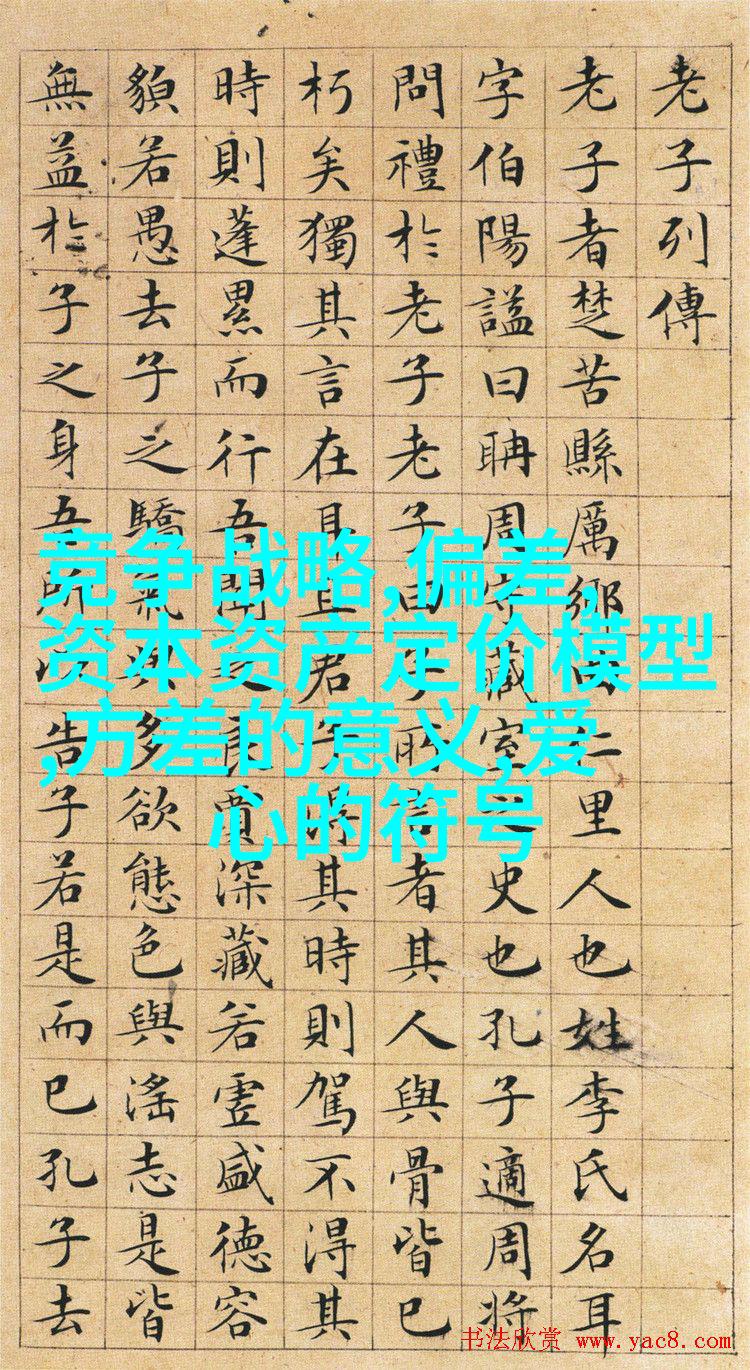 老子列傳
老子者楚苦縣厲鄉曲仁里人也姓李氏名耳
字伯陽謚曰聃周守藏室之史也孔子適周將
問禮於老子老子曰子所言者其人與骨皆已
朽矣獨其言在耳且君子得其時則駕不得其
時則蓬累而行吾聞之良賈深藏若虛盛德容
貌若愚去子之驕氣與多欲態色與淫志是皆
無益於子之身吾所以告子若是而已孔子去
竞争战略,偏差,
资本资产定价模型
,方差的意义,爱
心的符号
书法欣赏 www.yac8.com